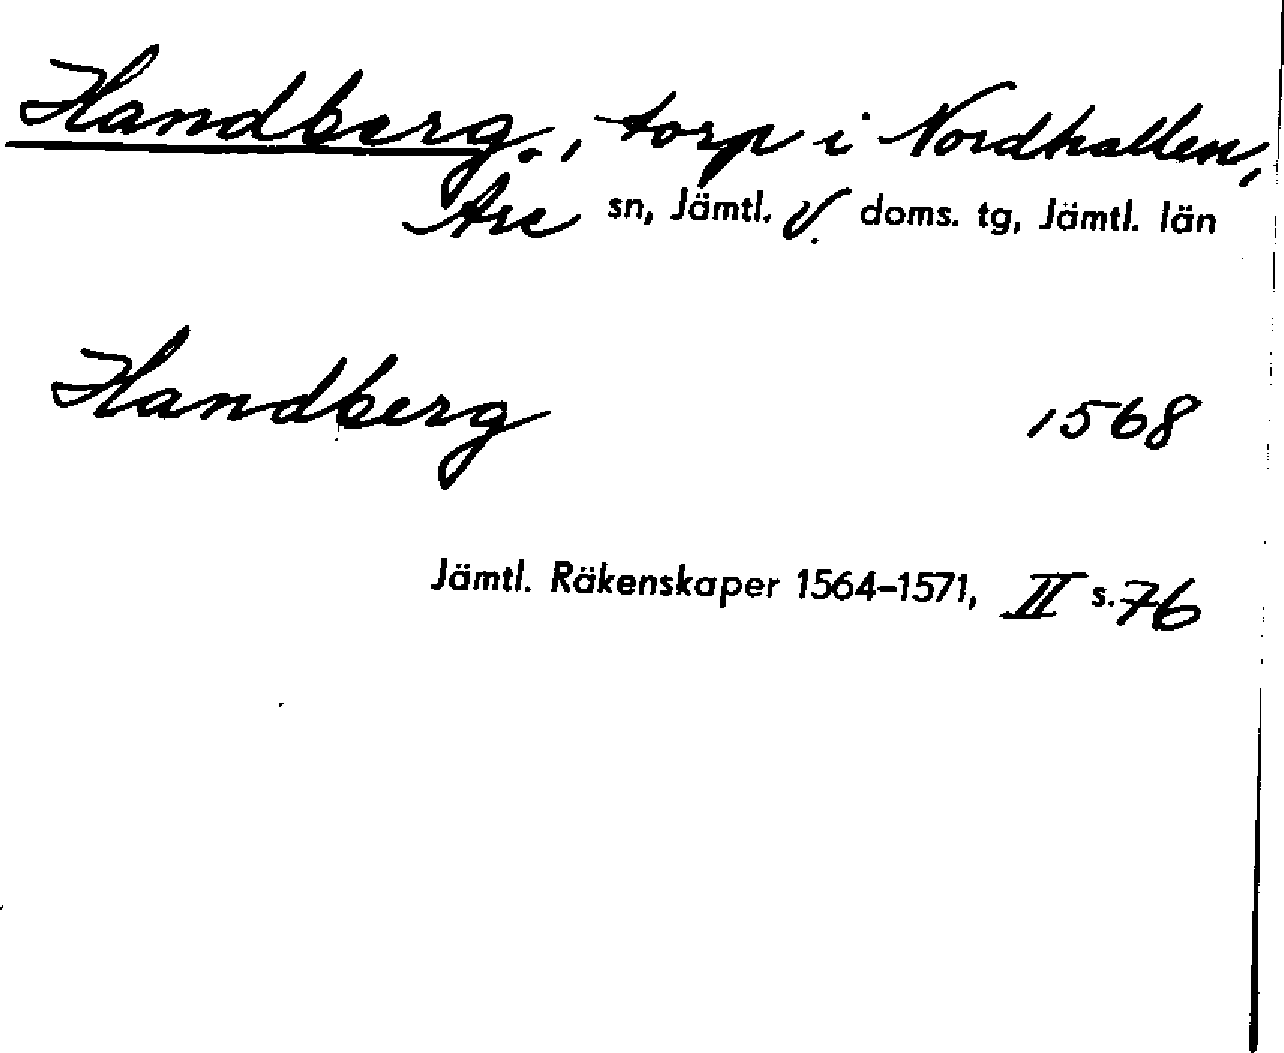 Handberg., torp i Nordhallen,
Åre sn, Jämtl. V. doms. tg, Jämtl. län
Handberg 1568
Jämtl. Räkenskaper 1564-1571, II s. 76